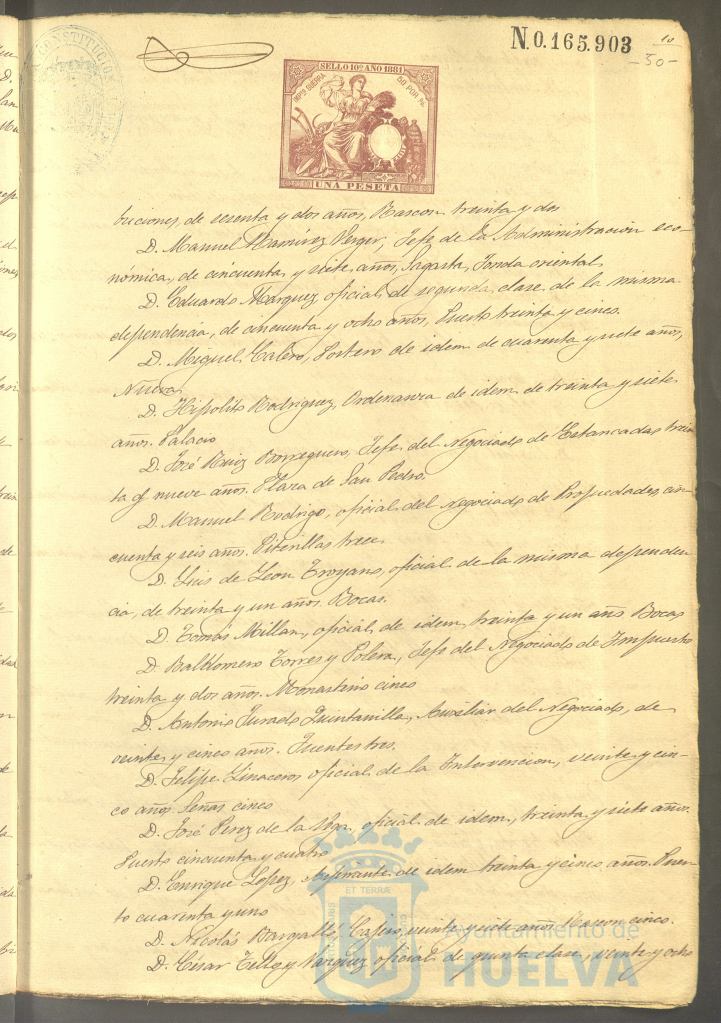 N.0.165.903
10
-30-
SELLO 10º AÑO 1881
IMPTO GUERRA
50 POR %
UNA PESETA
buciones, de sesenta y dos años, Rascon treinta y dos
D. Manuel Ramirez Verger, Jefe de la Administracion eco-
nómica, de cincuenta y siete años, Sagasta, Fonda oriental
D. Eduardo Marquez oficial de segunda clase de la misma
dependencia, de cincuenta y ocho años, Puerto treinta y cinco.
D. Miguel Calero, Portero de idem de cuarenta y siete años,
Nueva
D. Hipolito Rodriguez, Ordenanza de idem de treinta y siete
años. Palacio
D. José Ruiz Borreguero, Jefe del Negociado de Estancadas trein
ta y nueve años. Plaza de San Pedro.
D. Manuel Rodrigo, oficial del negociado de Propiedades, cin
cuenta y seis años. Piterillas trece
D. Luis de Leon Troyano, oficial de la misma dependen
cia, de treinta y un años. Bocas.
D. Tomás Millan, oficial de idem, treinta y un año Bocas
D. Baldomero Torres y Polera, Jefe del Negociado de Impuesto
treinta y dos años. Monasterio cinco
D. Antonio Jurado Quintanilla, Auxiliar del Negociado, de
veinte y cinco años. Fuentes tres.
D. Felipe Linaceros oficial de la Intervencion, veinte y cin-
co años. Señas cinco
D. José Perez de la oficial de idem, treinta y siete años.
Puerto cincuenta y cuatro
D. Enrique Lopez, Aspirante de idem treinta y cinco años. Puer
to cuarenta y uno
D. Nicolás Bargalló, Cajero, veinte y siete años Rascon cinco.
D. César Tello y Vazquez oficial de quinta clase, veinte y ocho
ET TERRÆ
Ayuntamiento de
HUELVA